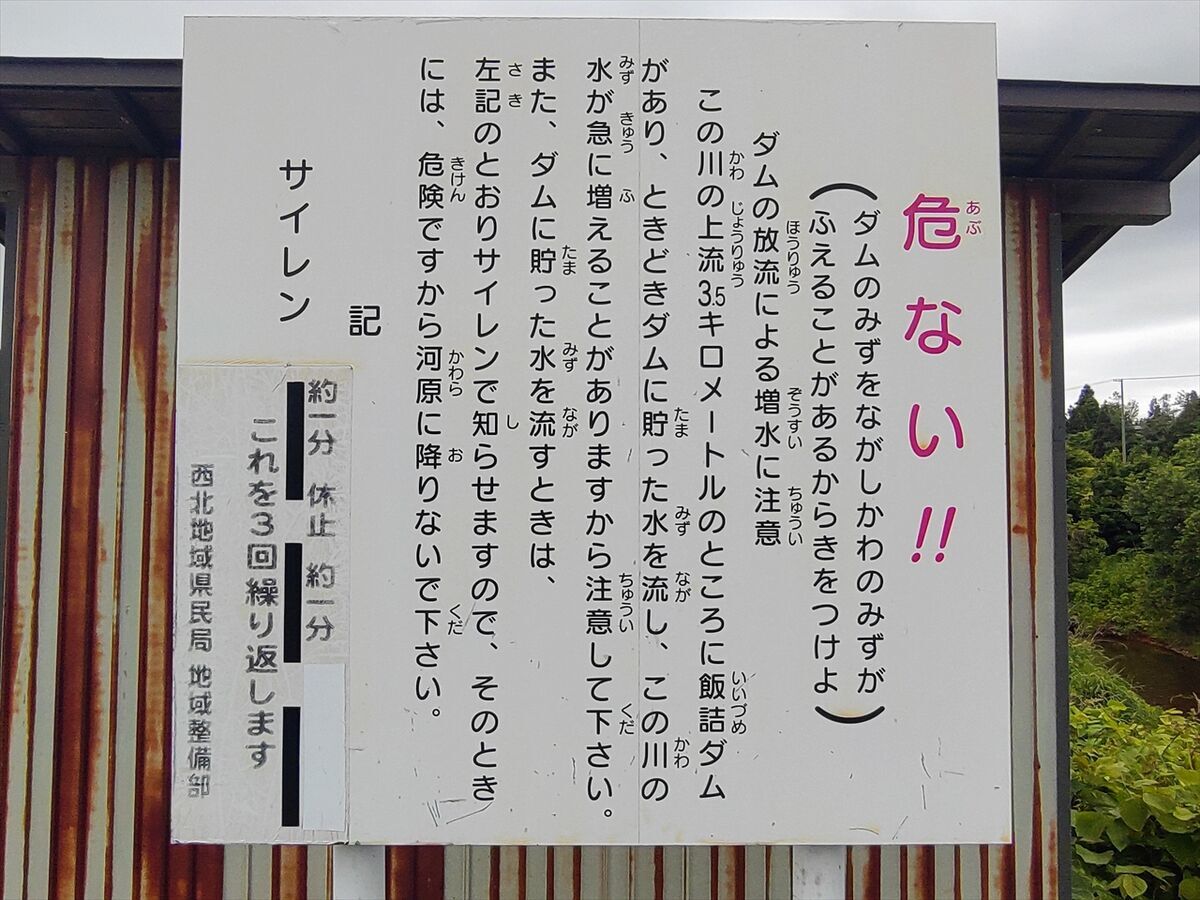 危ない!!
(ダムのみずをながしかわのみずが
ふえることがあるからきをつけよ)
ダムの放流による増水に注意
この川の上流3.5キロメートルのところに飯詰ダム
があり、ときどきダムに貯った水を流し、この川の
水が急に増えることがありますから注意して下さい。
また、ダムに貯った水を流すときは、
左記のとおりサイレンで知らせますので、そのとき
には、危険ですから河原に降りないで下さい。
記
サイレン
約一分 休止 約一分
これを3回繰り返します
西北地域県民局 地域整備部